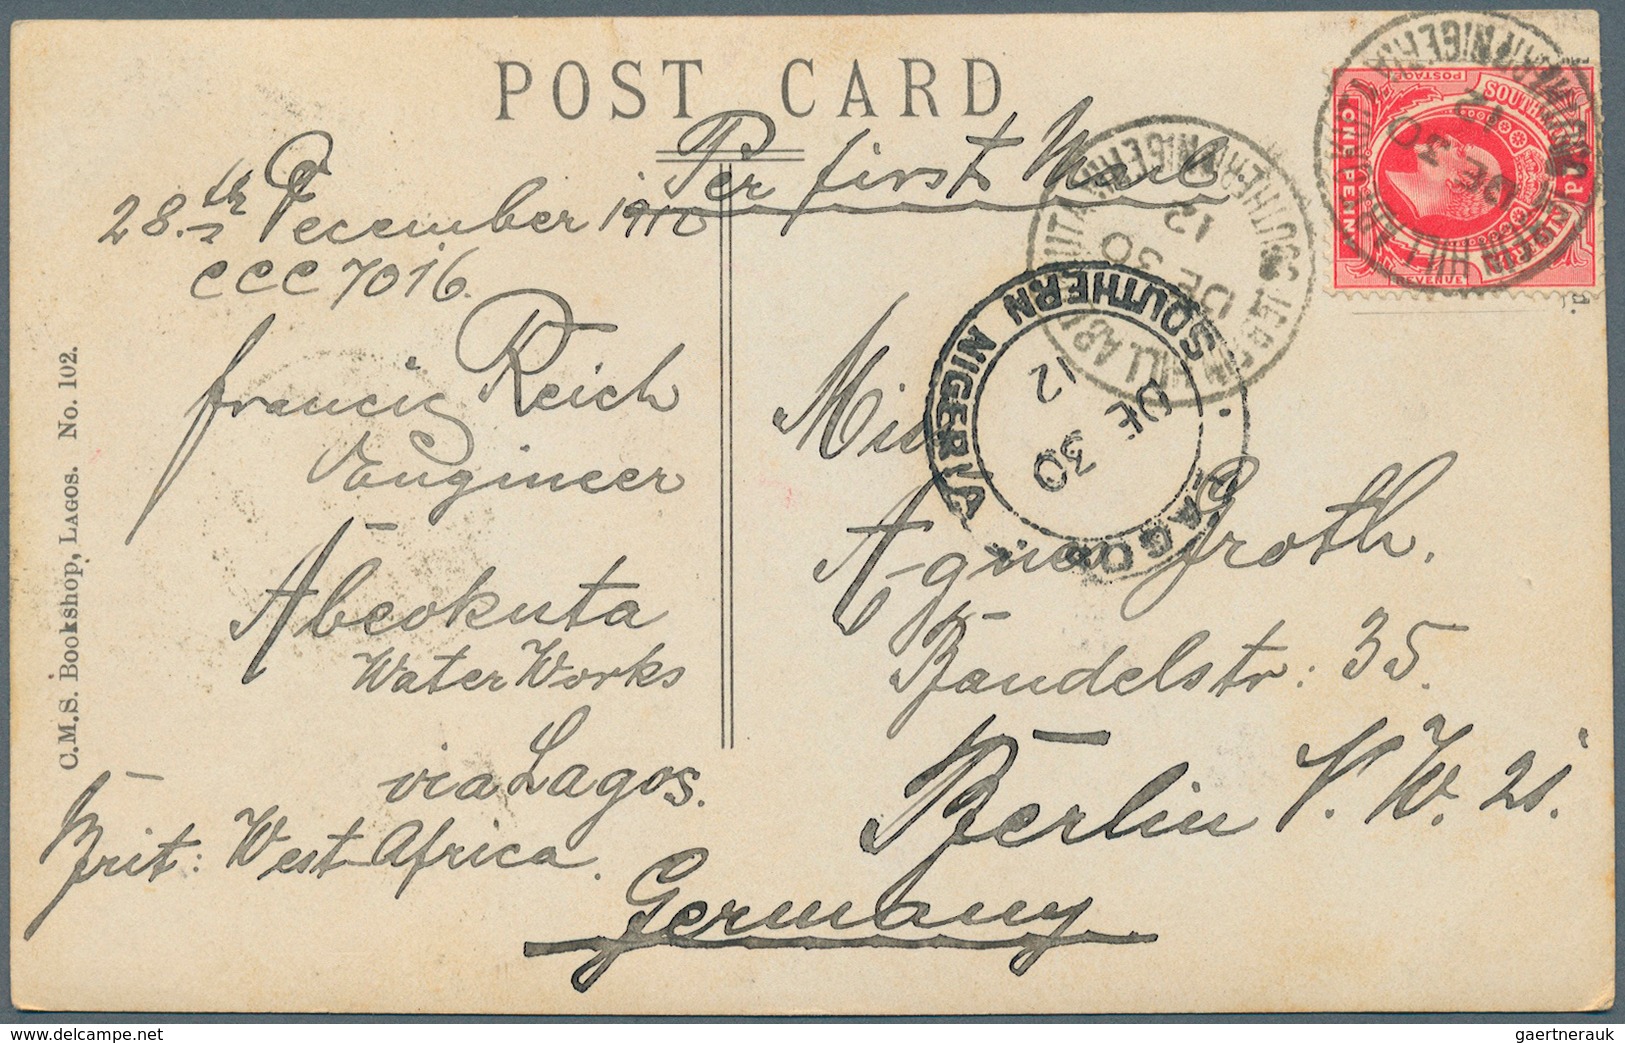 POST CARD
Per first Mail
28.th December 1910
CCC 7016.
Francis Reich
Engineer
Abeokuta
Water Works
via Lagos.
Brit: West Africa.
Miss
Agnes Groth.
Bandelstr: 35.
Berlin N.W. 21.
Germany
C.M.S. Bookshop, LAGOS. No. 102.
SOUTHERN NIGERIA
POSTAGE
ONE PENNY
REVENUE
1d
SOUTHERN NIGERIA
DE 30
12
SOUTHERN NIGERIA
DE 30
12
LAGOS
SOUTHERN NIGERIA
DE 30
12
www.delcampe.net
gaertnerauk